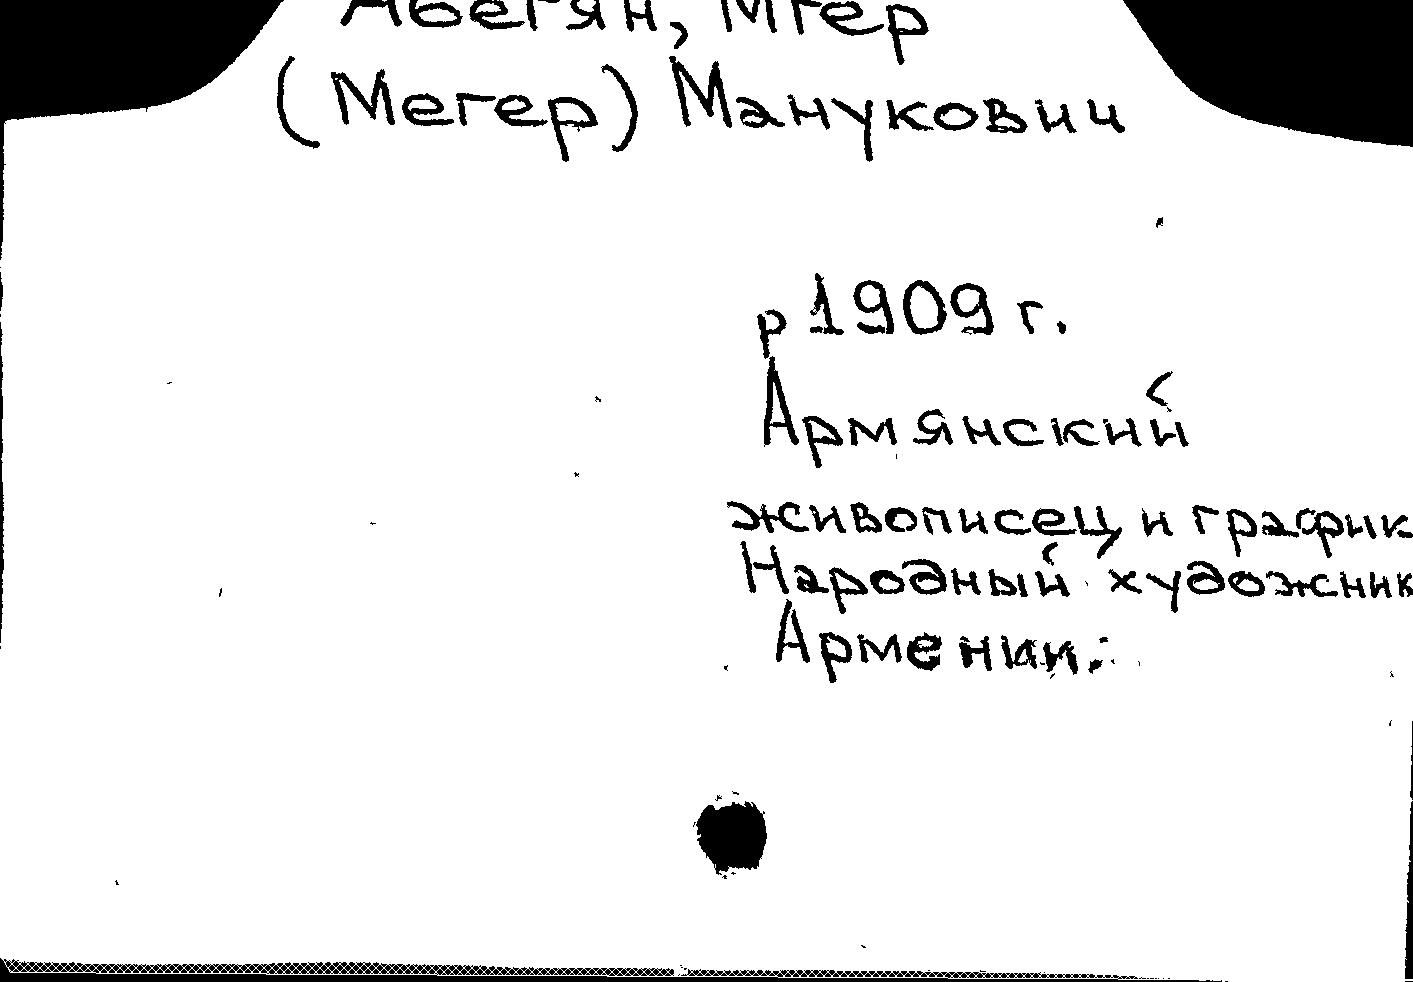 Абегян, Мгер
(Мегер) Манукович
р 1909 г.
Армянский
живописец и график
Народный художник
Армении.